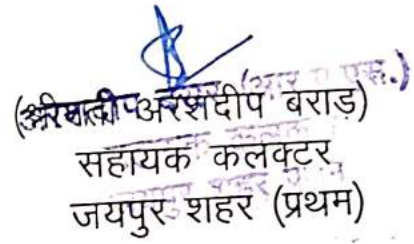 (श्रीमती अरशदीप बराड)
सहायक कलक्टर
जयपुर शहर (प्रथम)